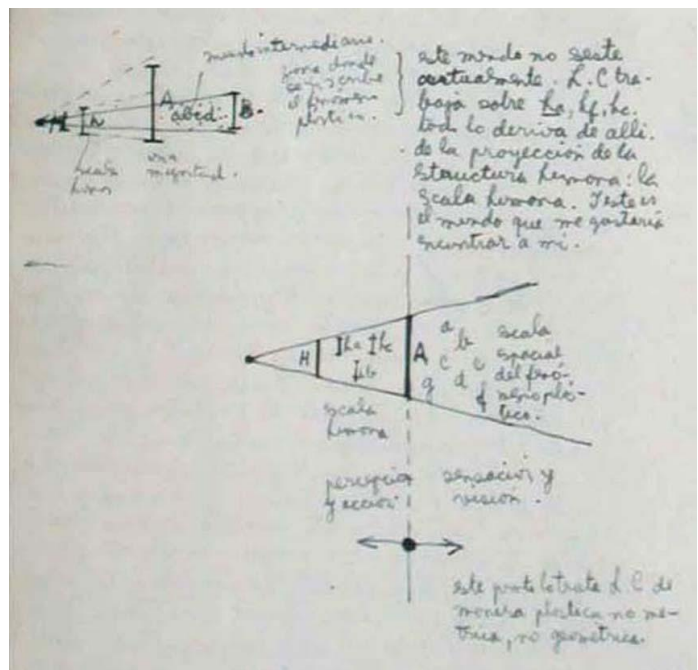 mundo intermediario.
zona donde
se inscribe
el fenómeno
plástico.
H h A abcd B
scala
humana
una
magnitud.
este mundo no seste
actualmente. L.C tra-
baja sobre ha, hb, hc.
todo lo deriva de alli.
de la proyección de la
structura humana: la
scala humana. I este es
el mundo que me gustaría
encontrar a mi.
H ha hc hb A a b c d e f g
escala
espacial
del fenó-
meno plás-
tico.
scala
humana
percepción sensación y
y acción visión.
este punto lo trata L C de
manera plástica no mé-
trica, no geométrica.